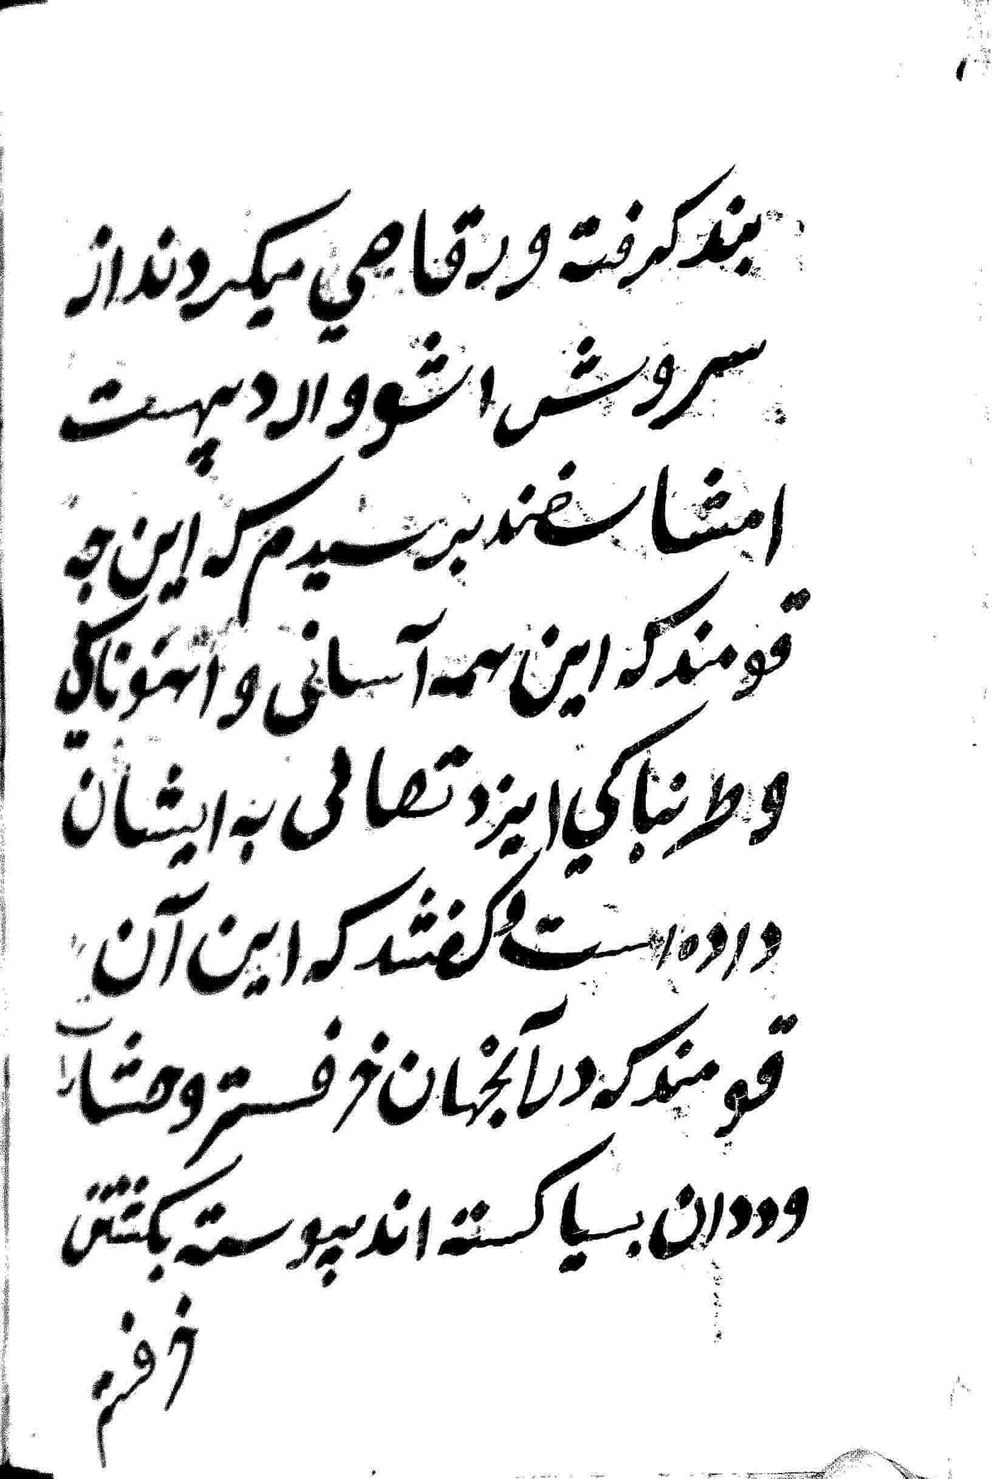 بند کرفته و رقاصي میکردند از
سروش اشو و ارد یبهست
امشاسفند بپرسیدم که این چه
قومند که این همه آسانی و
وطربناکي ایزد تعالی به ایشان
داده است و کفتند که این آن
قومند که در آنجهان خرفستر و حشارا
و ددان بسیا کشته اند پیوسته بکشتن
خرفستر